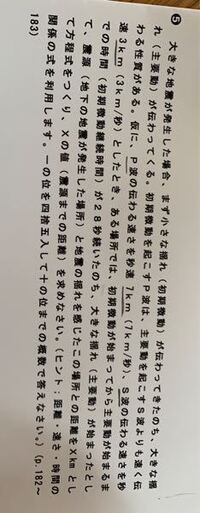 ❺ 大きな地震が発生した場合、まず小さな揺れ（初期微動）が伝わってきたのち、大きな揺
れ（主要動）が伝わってくる。初期微動を起こすP波は、主要動を起こすS波よりも速く伝
わる性質がある。仮に、P波の伝わる速さを秒速7km（7km/秒）、S波の伝わる速さを秒
速3km（3km/秒）としたとき、ある場所では、初期微動が始まってから主要動が始まるま
での時間（初期微動継続時間）が28秒続いたのち、大きな揺れ（主要動）が始まったとし
て、震源（地下の地震が発生した場所）と地震の揺れを感じたこの場所との距離をXkmとし
て方程式をつくり、Xの値（震源までの距離）を求めなさい。（ヒント：距離・速さ・時間の
関係の式を利用します。一の位を四捨五入して十の位までの概数で答えなさい。）（p.182～
183）